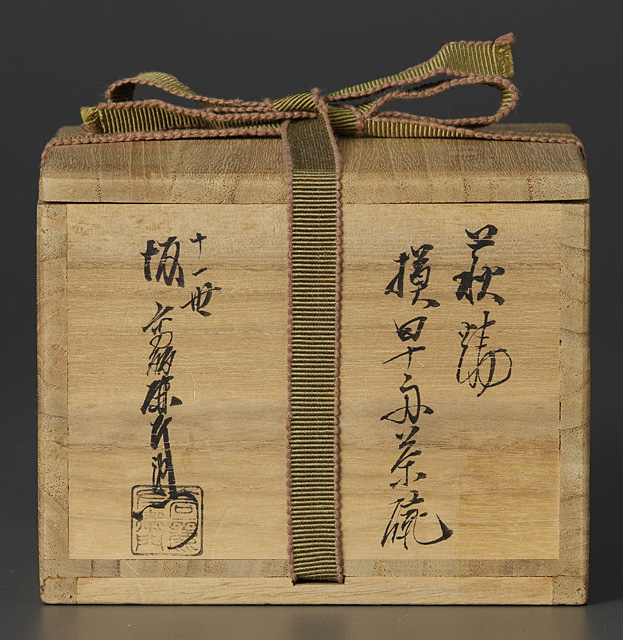 萩焼
摸早舟茶碗
十一世
坂高麗左衛門